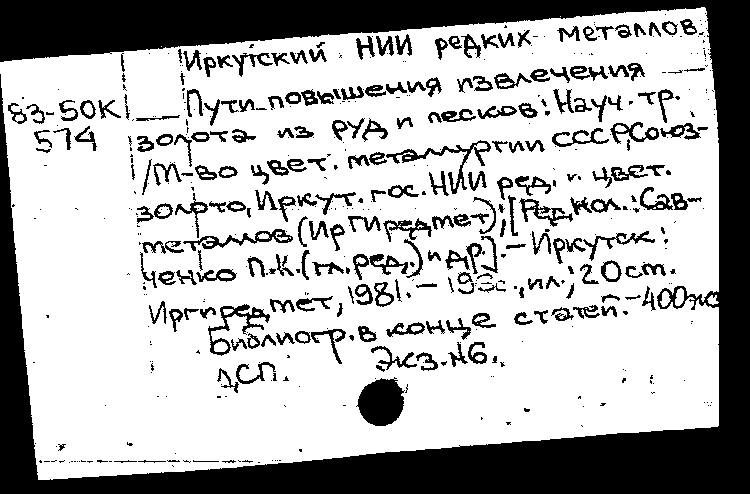 Иркутский НИИ редких металлов
83-50К
574
Пути повышения извлечения
золота из руд и песков: Науч. тр.
/М-во цвет. металлургии СССР, Союз-
золото, Иркут. гос. НИИ ред. и цвет.
металлов (Иргиредмет); [Ред. кол.: Сав-
ченко П.К. (гл. ред.) и др.]. – Иркутск:
Иргиредмет, 1981. – с., ил.; 20 см.
Библиогр. в конце статей. – 400 экз
ДСП. Экз. №6.